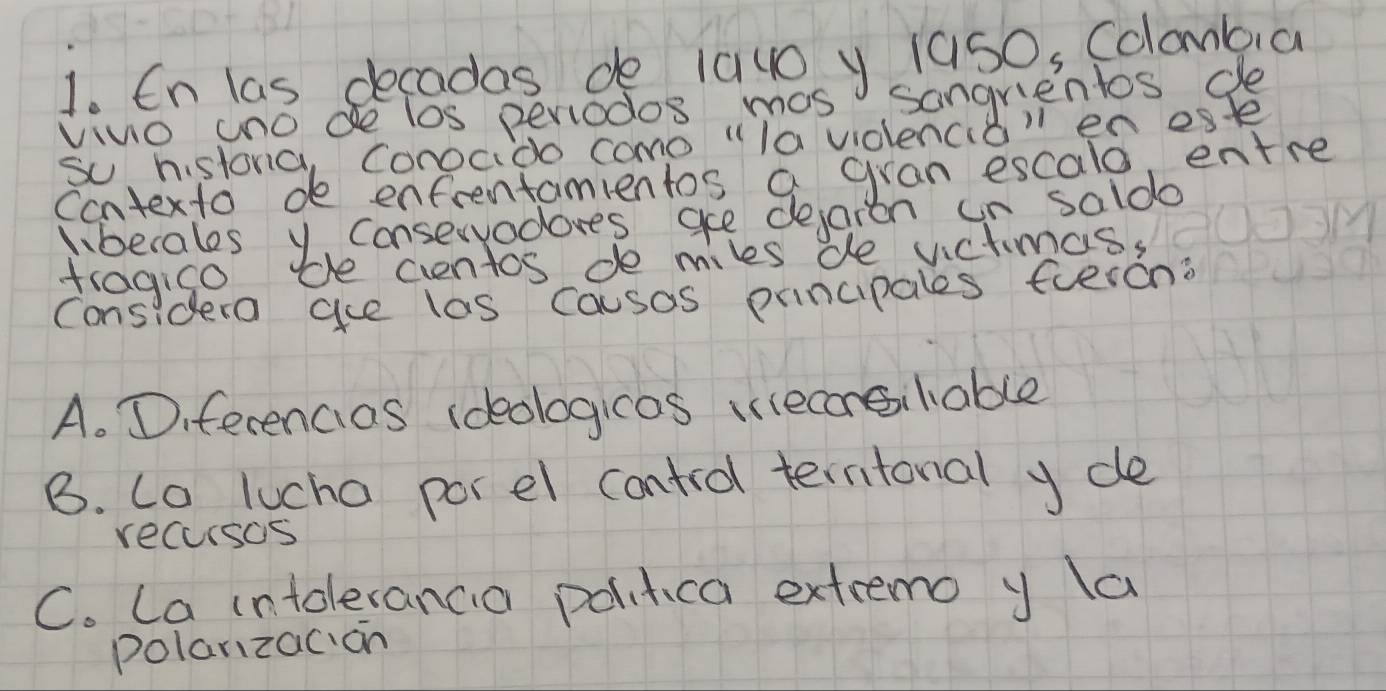 1. En las decadas de 1940 y 1950, Colombia
vivio uno de los periodos mas sangrientos de
su historia, conocido como "la violencia" en este
contexto de enfrentamientos a gran escala entre
liberales y conservadores que dejaron un saldo
tragico de cientos de miles de victimas,
considero que las causas principales fueron:
A. Diferencias ideologicas irreconsiliable
B. La lucha por el control territorial y de
recursos
C. La intolerancia politica extremo y la
polarización